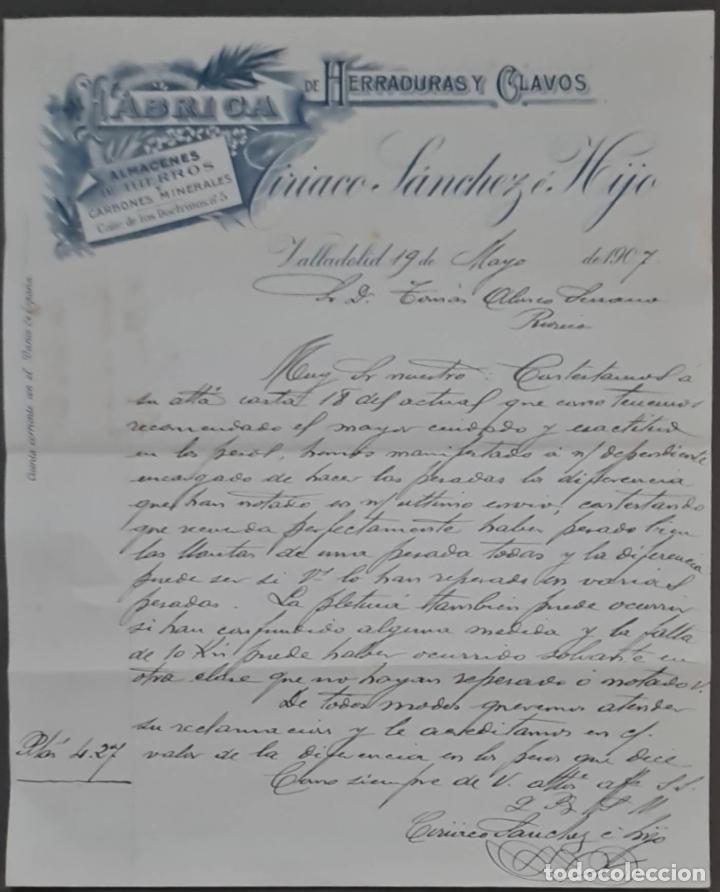 FÁBRICA DE HERRADURAS Y CLAVOS
ALMACENES
DE HIERROS
Y
CARBONES MINERALES
Calle de los Doctrinos, nº 5
Ciriaco Sánchez é Hijo
Valladolid 19 de Mayo de 1907
Sr. D. Tomás Alonso Serrano
Rioseco
Cuenta corriente con el Banco de España
Muy Sr nuestro: Contestamos á
su atta carta 18 del actual que como tenemos
recomendado el mayor cuidado y exactitud
en los pesos, hemos manifestado á n/ dependiente
encargado de hacer las pesadas la diferencia
que han notado en n/ ultimo envio, contestando
que recuerda perfectamente haber pesado bien
las llantas de una pesada todas y la diferencia
puede ser si Vs lo han repesado en varias
pesadas. La pletina tambien puede ocurrir
si han confundido alguna medida y la falta
de 10 Ks puede haber ocurrido sobrante en
otra clase que no hayan repesado ó notado V.
De todos modos queremos atender
su reclamacion y le acreditamos en c/.
Ptas 4.27 valor de la diferencia en los pesos que dice
Como siempre de V. attos affs S. S.
Q B S M
Ciriaco Sanchez é hijo
todocoleccion